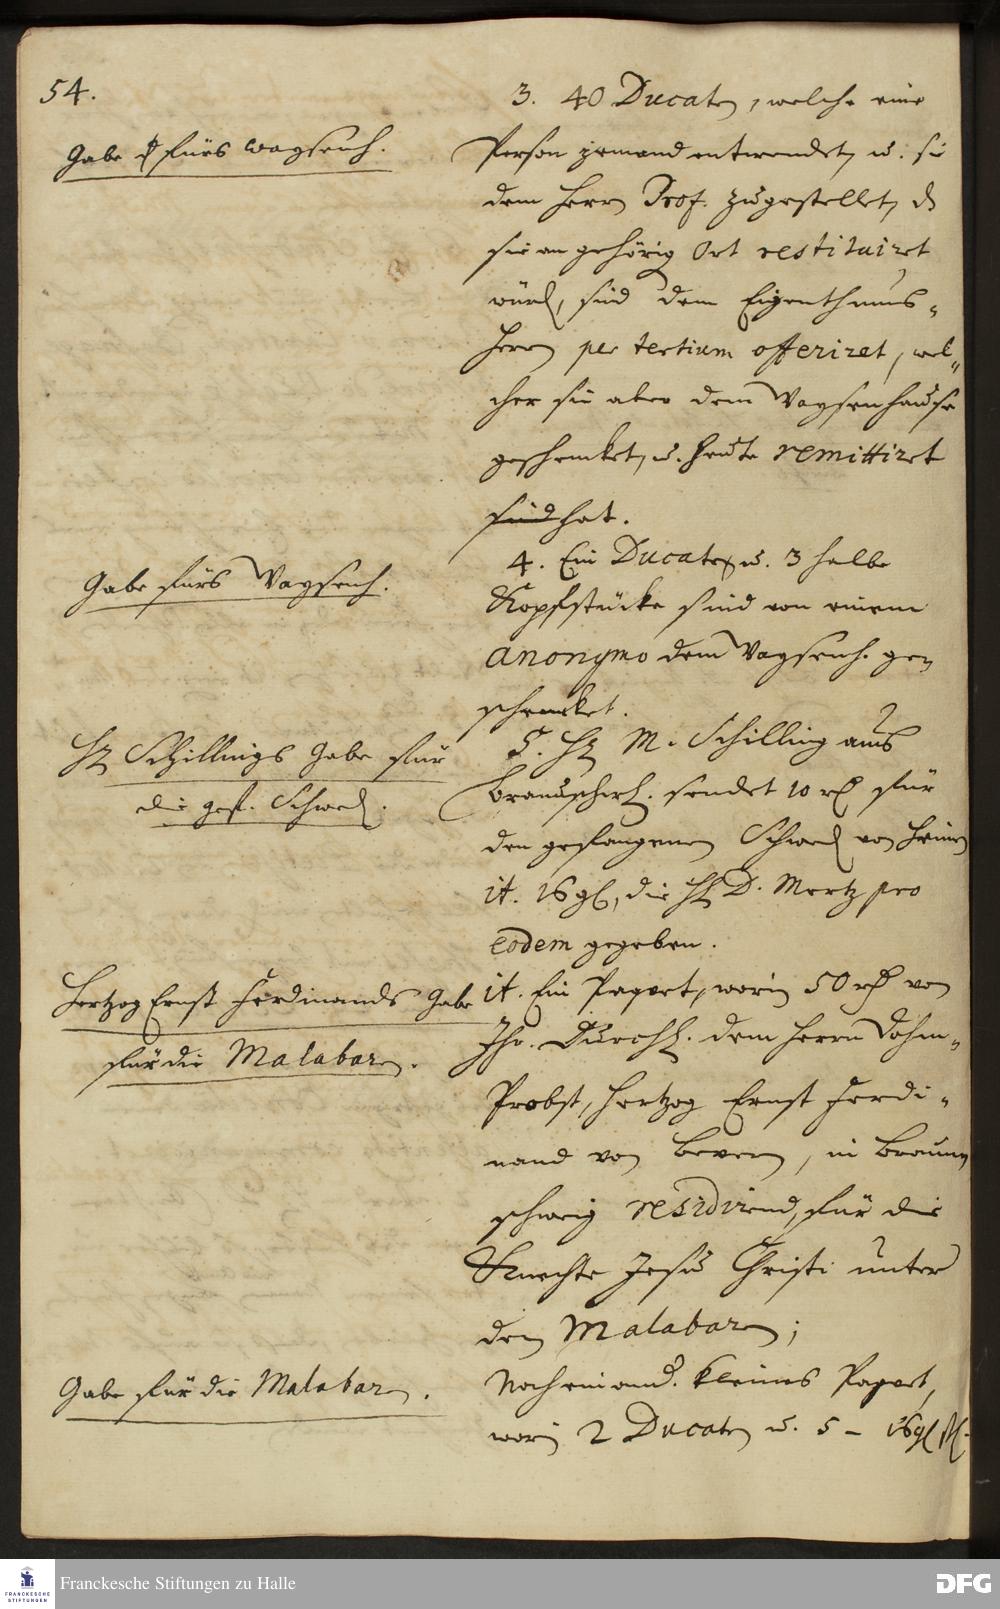 54.
Gabe fürs Waysenh.
3. 40 Ducaten, welche eine
Person jemand entwendet, u. sie
dem Herrn Prof. zugestellet, dß
sie an gehörig Ort restituiret
würdē, sind dem Eigenthums-
Herrn per tertium offeriret, wel-
cher sie aber dem Waysenhause
geschencket, u. heute remittiret
sind hat.
Gabe fürs Waysenh.
4. Ein Ducaten u. 3 halbe
Kopfstücke sind von einem
anonymo dem Waysenh. ge-
schencket.
Hr Schillings Gabe für
die gef. Schwed.
5. Hr M. Schilling aus
Braunschw. sendet 10 rth für
den gefangenen Schwed von
it. 16 gl, die Hr D. Mertz pro
eodem gegeben.
Hertzog Ernst Ferdinands Gabe
für die Malabaren.
it. Ein Paquet, worin 50 rth von
Ihr. Durchl. dem Herrn Dohm-
Probst, Hertzog Ernst Ferdi-
nand von Bevern, in Braun-
schweig residirend, für die
Knechte Jesu Christi unter
den Malabaren;
Gabe für die Malabaren.
Noch ein and. kleines Paquet,
worin 2 Ducaten u. 5 - 16 gl
Franckesche Stiftungen zu Halle
FRANCKESCHE
STIFTUNGEN
DFG